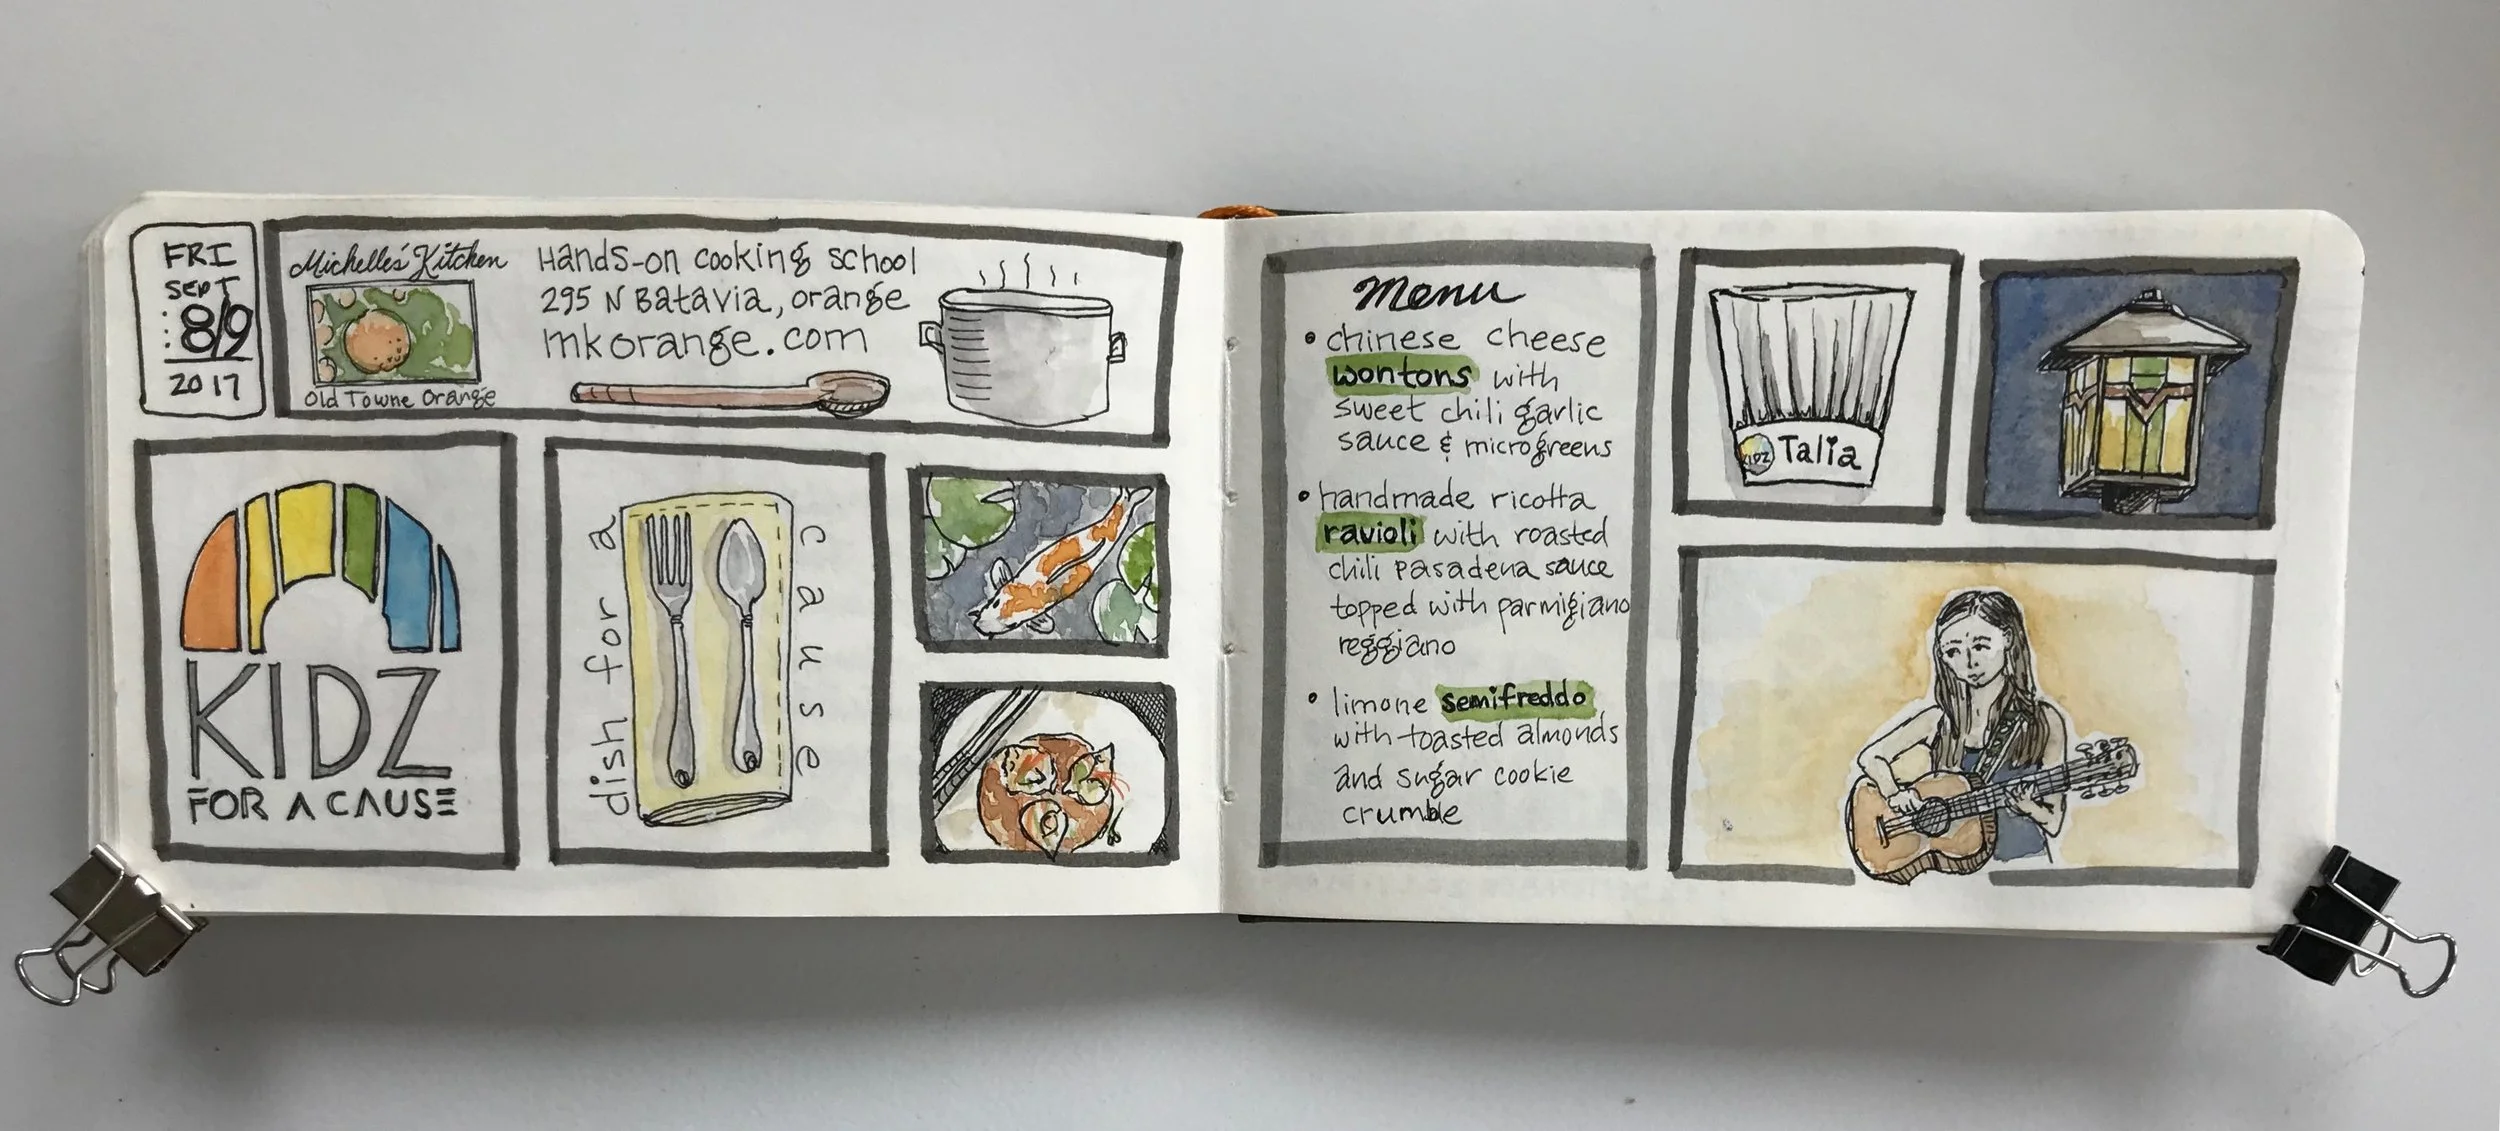 FRI
SEPT
8/9
2017
Michelle's Kitchen
Old Towne Orange
Hands-on cooking school
295 N Batavia, orange
mkorange.com
KIDZ
FOR A CAUSE
dish for a
cause
Menu
• chinese cheese
wontons with
sweet chili garlic
sauce & microgreens
• handmade ricotta
ravioli with roasted
chili pasadena sauce
topped with parmigiano
reggiano
• limone semifreddo
with toasted almonds
and sugar cookie
crumble
KIDZ
Talia